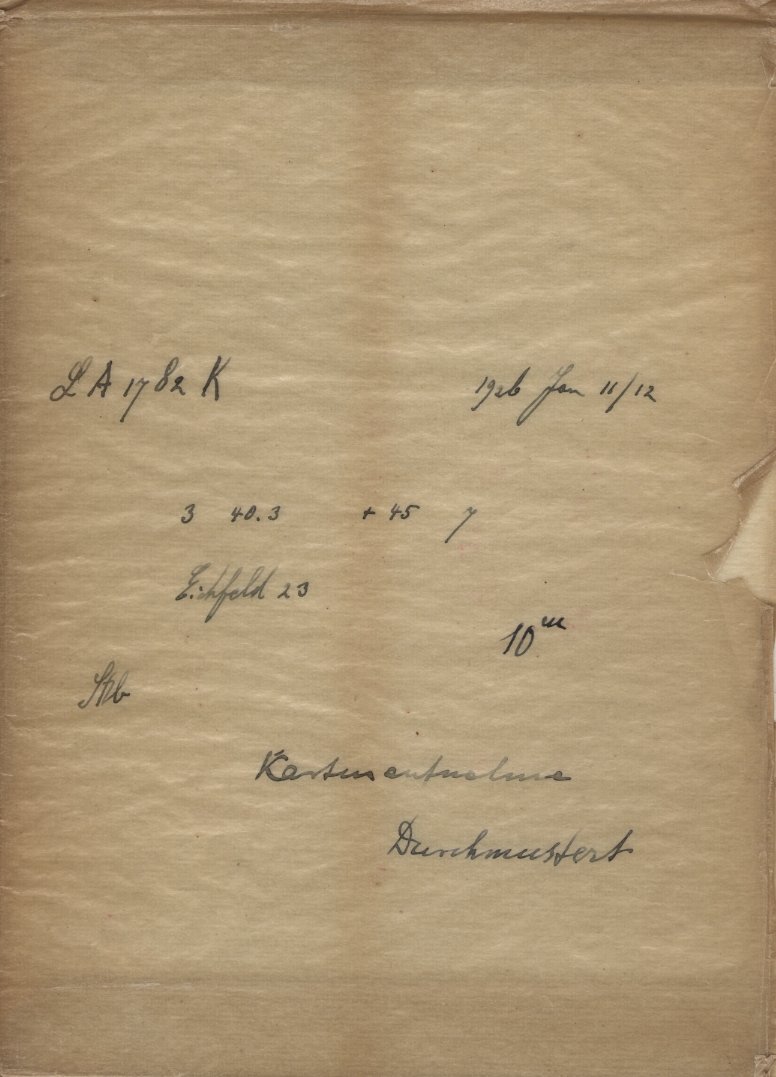 L A 1782 K 1926 Jan 11/12
3 40.3 + 45 7
Eichfeld 23
10 m
Kartenaufnahme
Durchmustert